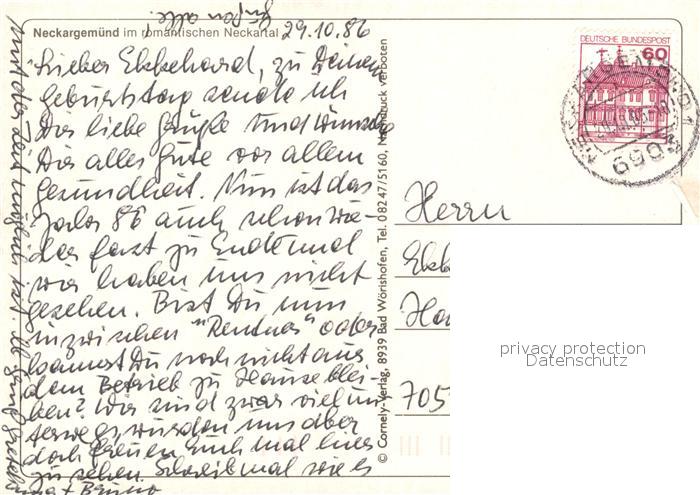 Grüßen alle!
Neckargemünd im romantischen Neckartal
29.10.86
Lieber Ekkehard, zu Deinem
Geburtstag sende ich
Dir liebe Grüße und wünsche
Dir alles Gute vor allem
Gesundheit. Nun ist das
Jahr 86 auch schon wie-
der fast zu Ende und
wir haben uns nicht
gesehen. Bist Du nun
inzwischen "Rentner" oder
kannst Du noch nicht aus
dem Betrieb zu Hause blei-
ben? Wir sind zwar viel un-
terwegs, würden uns aber
doch freuen Euch mal hier
zu sehen. Schreib mal wie es
mit der Zeit möglich ist
+ Benno
© Cornely-Verlag, 8939 Bad Wörishofen, Tel. 08247/5160, Nachdruck verboten
DEUTSCHE BUNDESPOST
60
6903
Herrn
Ekk
705
privacy protection
Datenschutz